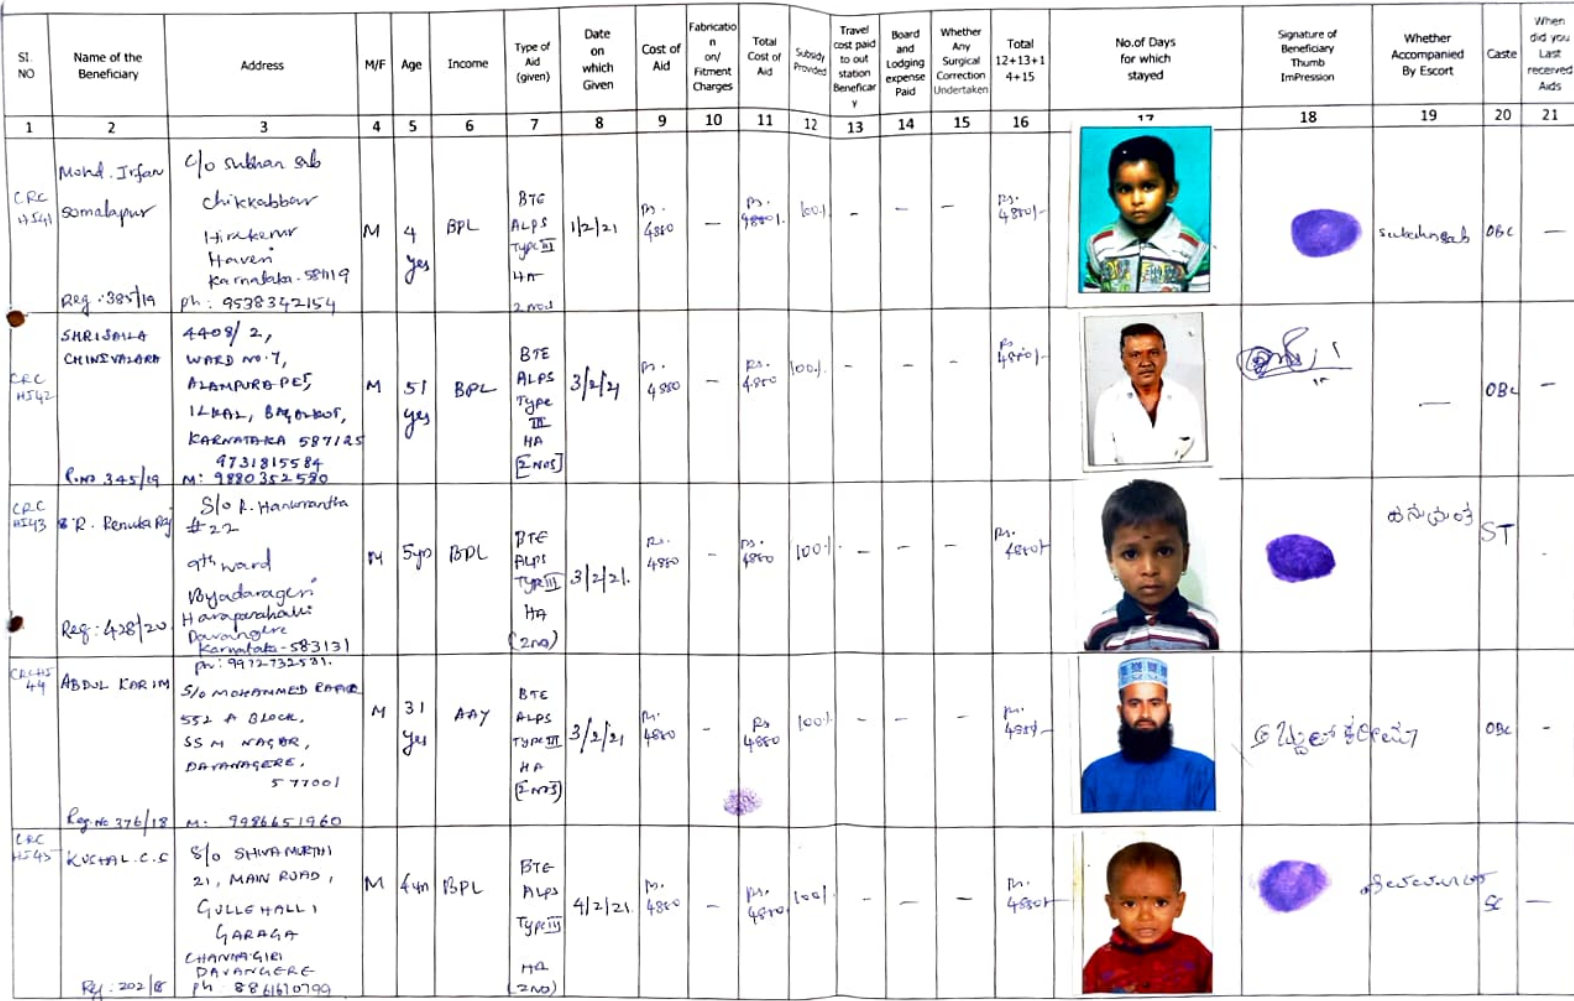 Sl. NO
Name of the Beneficiary
Address
M/F
Age
Income
Type of Aid (given)
Date on which Given
Cost of Aid
Fabrication on/ Fitment Charges
Total Cost of Aid
Subsidy Provided
Travel cost paid to out station Beneficary
Board and Lodging expense Paid
Whether Any Surgical Correction Undertaken
Total 12+13+14+15
No.of Days for which stayed
Signature of Beneficiary Thumb ImPression
Whether Accompanied By Escort
Caste
When did you Last received Aids
1 2 3 4 5 6 7 8 9 10 11 12 13 14 15 16 17 18 19 20 21
CRC HI41
Mohd. Irfan
Somalapur
Reg : 385/19
C/o Subhan sab
Chikkabbar
Hirekerur
Haveri
Karnataka - 581119
ph : 9538342154
M
4 yes
BPL
BTE
ALPS
Type III
HA
2 nos
1/2/21
Rs. 4880
—
Rs. 4880/-
100%
- - -
Rs. 4880/-
OBC
—
CRC HI42
SHRISAILA
CHINIVALARA
R.No 345/19
4408/2,
WARD NO. 7,
ALAMPURA PET,
ILKAL, BAGALKOT,
KARNATAKA 587125
9731815584
M: 9880352580
M
51 yes
BPL
BTE
ALPS
Type III
HA
[2 NOS]
3/2/21
Rs. 4880
—
Rs. 4880
100%
- - -
Rs 4880/-
—
OBC
—
CRC HI43
R. Renuka Raj
Reg : 428/20
S/o R. Hanumantha
#22
9th ward
Byadarageri
Davangere
Karnataka - 583131
ph : 9972732531.
M
5yrs
BPL
BTE
ALPS
Type III
HA
(2no)
3/2/21.
Rs. 4880
-
Rs. 4880
100%
- - -
Rs. 4880/-
ಹನುಮಂತ
ST
-
CRC HI 44
ABDUL KARIM
Reg. No 376/18
S/o MOHAMMED RAFIQ
552 A BLOCK,
SS M NAGAR,
DAVANAGERE,
577001
M: 9986651960
M
31 yes
AAY
BTE
ALPS
Type III
HA
[2 NOS]
3/2/21
Rs. 4880
-
Rs 4880
100%
- - -
Rs. 4880/-
ಅಬ್ದುಲ್ ಕರೀಮ್
OBC
-
CRC HI45
KUSHAL. C. S
S/o SHIVAMURTHI
21, MAIN ROAD,
GULLEHALLI
GARAGA
CHANNAGIRI
DAVANGERE
ph : 8861610799
M
4yrs
BPL
BTE
ALPS
Type III
HA
(2NO)
4/2/21.
Rs. 4880
-
Rs. 4880
100%
- - -
Rs. 4880/-
SC
—